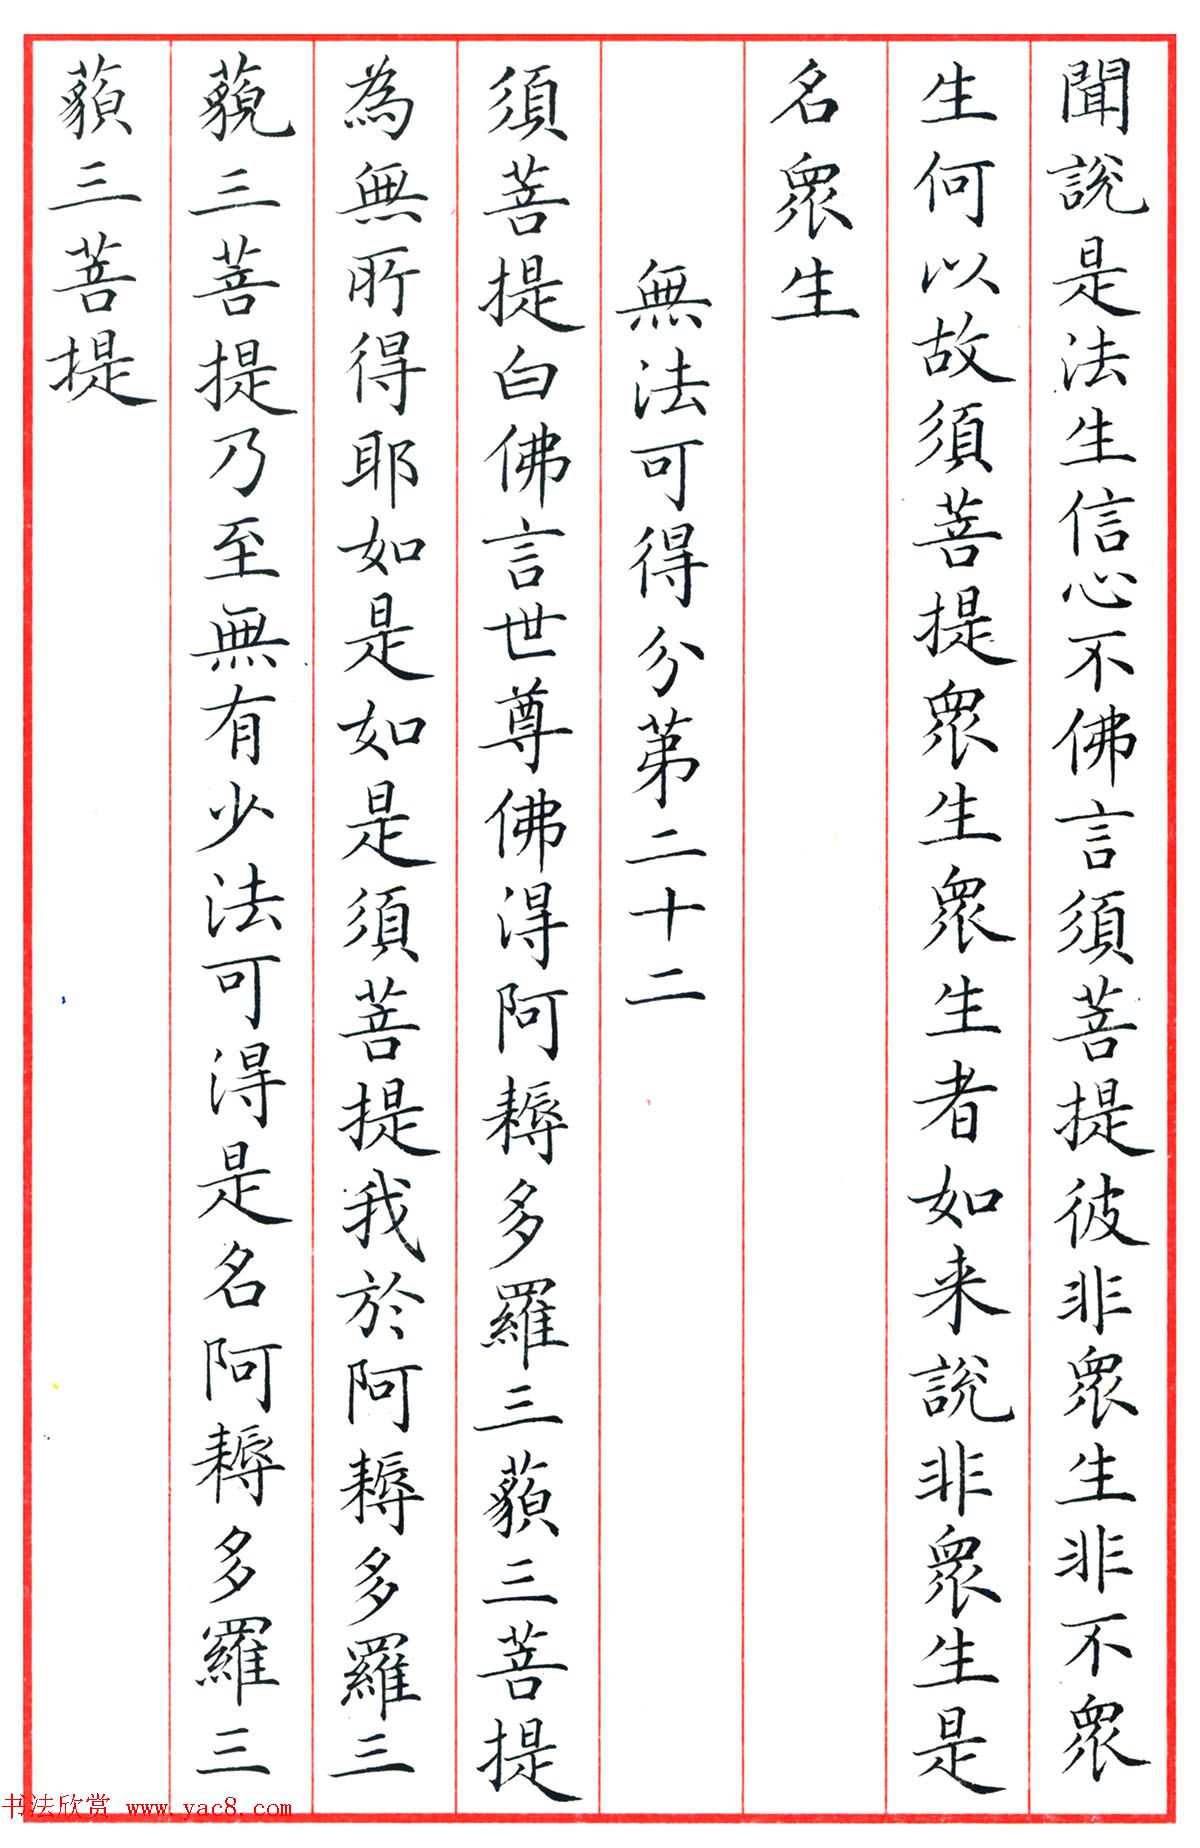 聞說是法生信心不佛言須菩提彼非眾生非不眾
生何以故須菩提眾生眾生者如来說非眾生是
名眾生
無法可得分第二十二
須菩提白佛言世尊佛得阿耨多羅三藐三菩提
為無所得耶如是如是須菩提我於阿耨多羅三
藐三菩提乃至無有少法可得是名阿耨多羅三
藐三菩提
书法欣赏 www.yac8.com